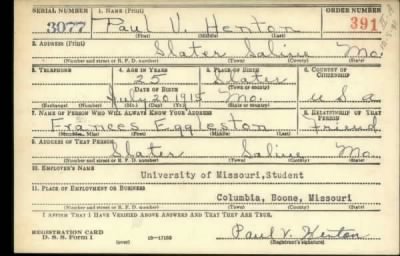 SERIAL NUMBER 1. NAME (Print) ORDER NUMBER
3077 Paul V. Henton 391
(First) (Middle) (Last)
2. ADDRESS (Print)
Slater Saline Mo.
(Number and street or R. F. D. number) (Town) (County) (State)
3. TELEPHONE 4. AGE IN YEARS 5. PLACE OF BIRTH 6. COUNTRY OF CITIZENSHIP
25 Slater
DATE OF BIRTH (Town or county)
July 20 1915 Mo. U S a
(Exchange) (Number) (Mo.) (Day) (Yr.) (State or country)
7. NAME OF PERSON WHO WILL ALWAYS KNOW YOUR ADDRESS 8. RELATIONSHIP OF THAT PERSON
Frances Eggleston Friend
(Mr., Mrs., Miss) (First) (Middle) (Last)
9. ADDRESS OF THAT PERSON
Slater Saline Mo.
(Number and street or R. F. D. number) (Town) (County) (State)
10. EMPLOYER'S NAME
University of Missouri,Student
11. PLACE OF EMPLOYMENT OR BUSINESS
Columbia, Boone, Missouri
(Number and street or R. F. D. number) (Town) (County) (State)
I AFFIRM THAT I HAVE VERIFIED ABOVE ANSWERS AND THAT THEY ARE TRUE.
REGISTRATION CARD
D. S. S. Form 1 (over) 16—17105 Paul V. Henton
(Registrant's signature)